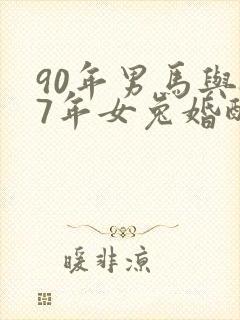 90年男馬與
7年女兔婚配
暖非凉